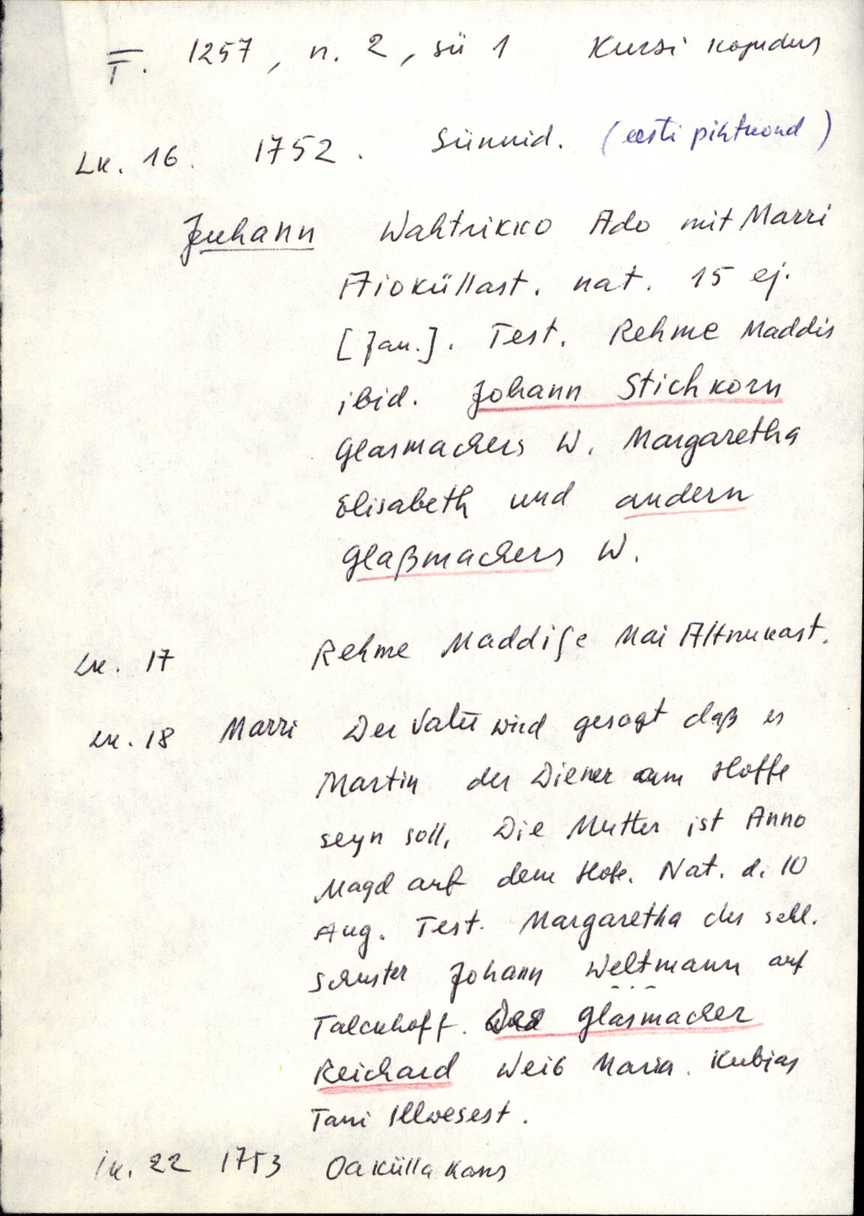 F. 1257, n. 2, sü 1 Kursi kogudus
Lk. 16. 1752. Sünnid. (eesti pihtkond)
Juhann Wahtrikko Ado mit Marri
Aioküllast. nat. 15 ej.
[Jan.]. Test. Rehme Maddis
ibid. Johann Stichkorn
Glasmachers W. Margaretha
Elisabeth und andern
Glaßmachers W.
Lk. 17 Rehme Maddise Mai Altnurkast.
Lk. 18 Marri Der Vater wird gesagt daß es
Martin der Diener am Hoffe
seyn soll, Die Mutter ist Anno
Magd auf dem Hofe. Nat. d. 10
Aug. Test. Margaretha des sehl.
Schuster Johann Weltmann auf
Talckhoff. Des Glasmacher
Reichard Weib Maria. Kubjas
Tani Illwesest.
lk. 22 1753 Oakülla Kans